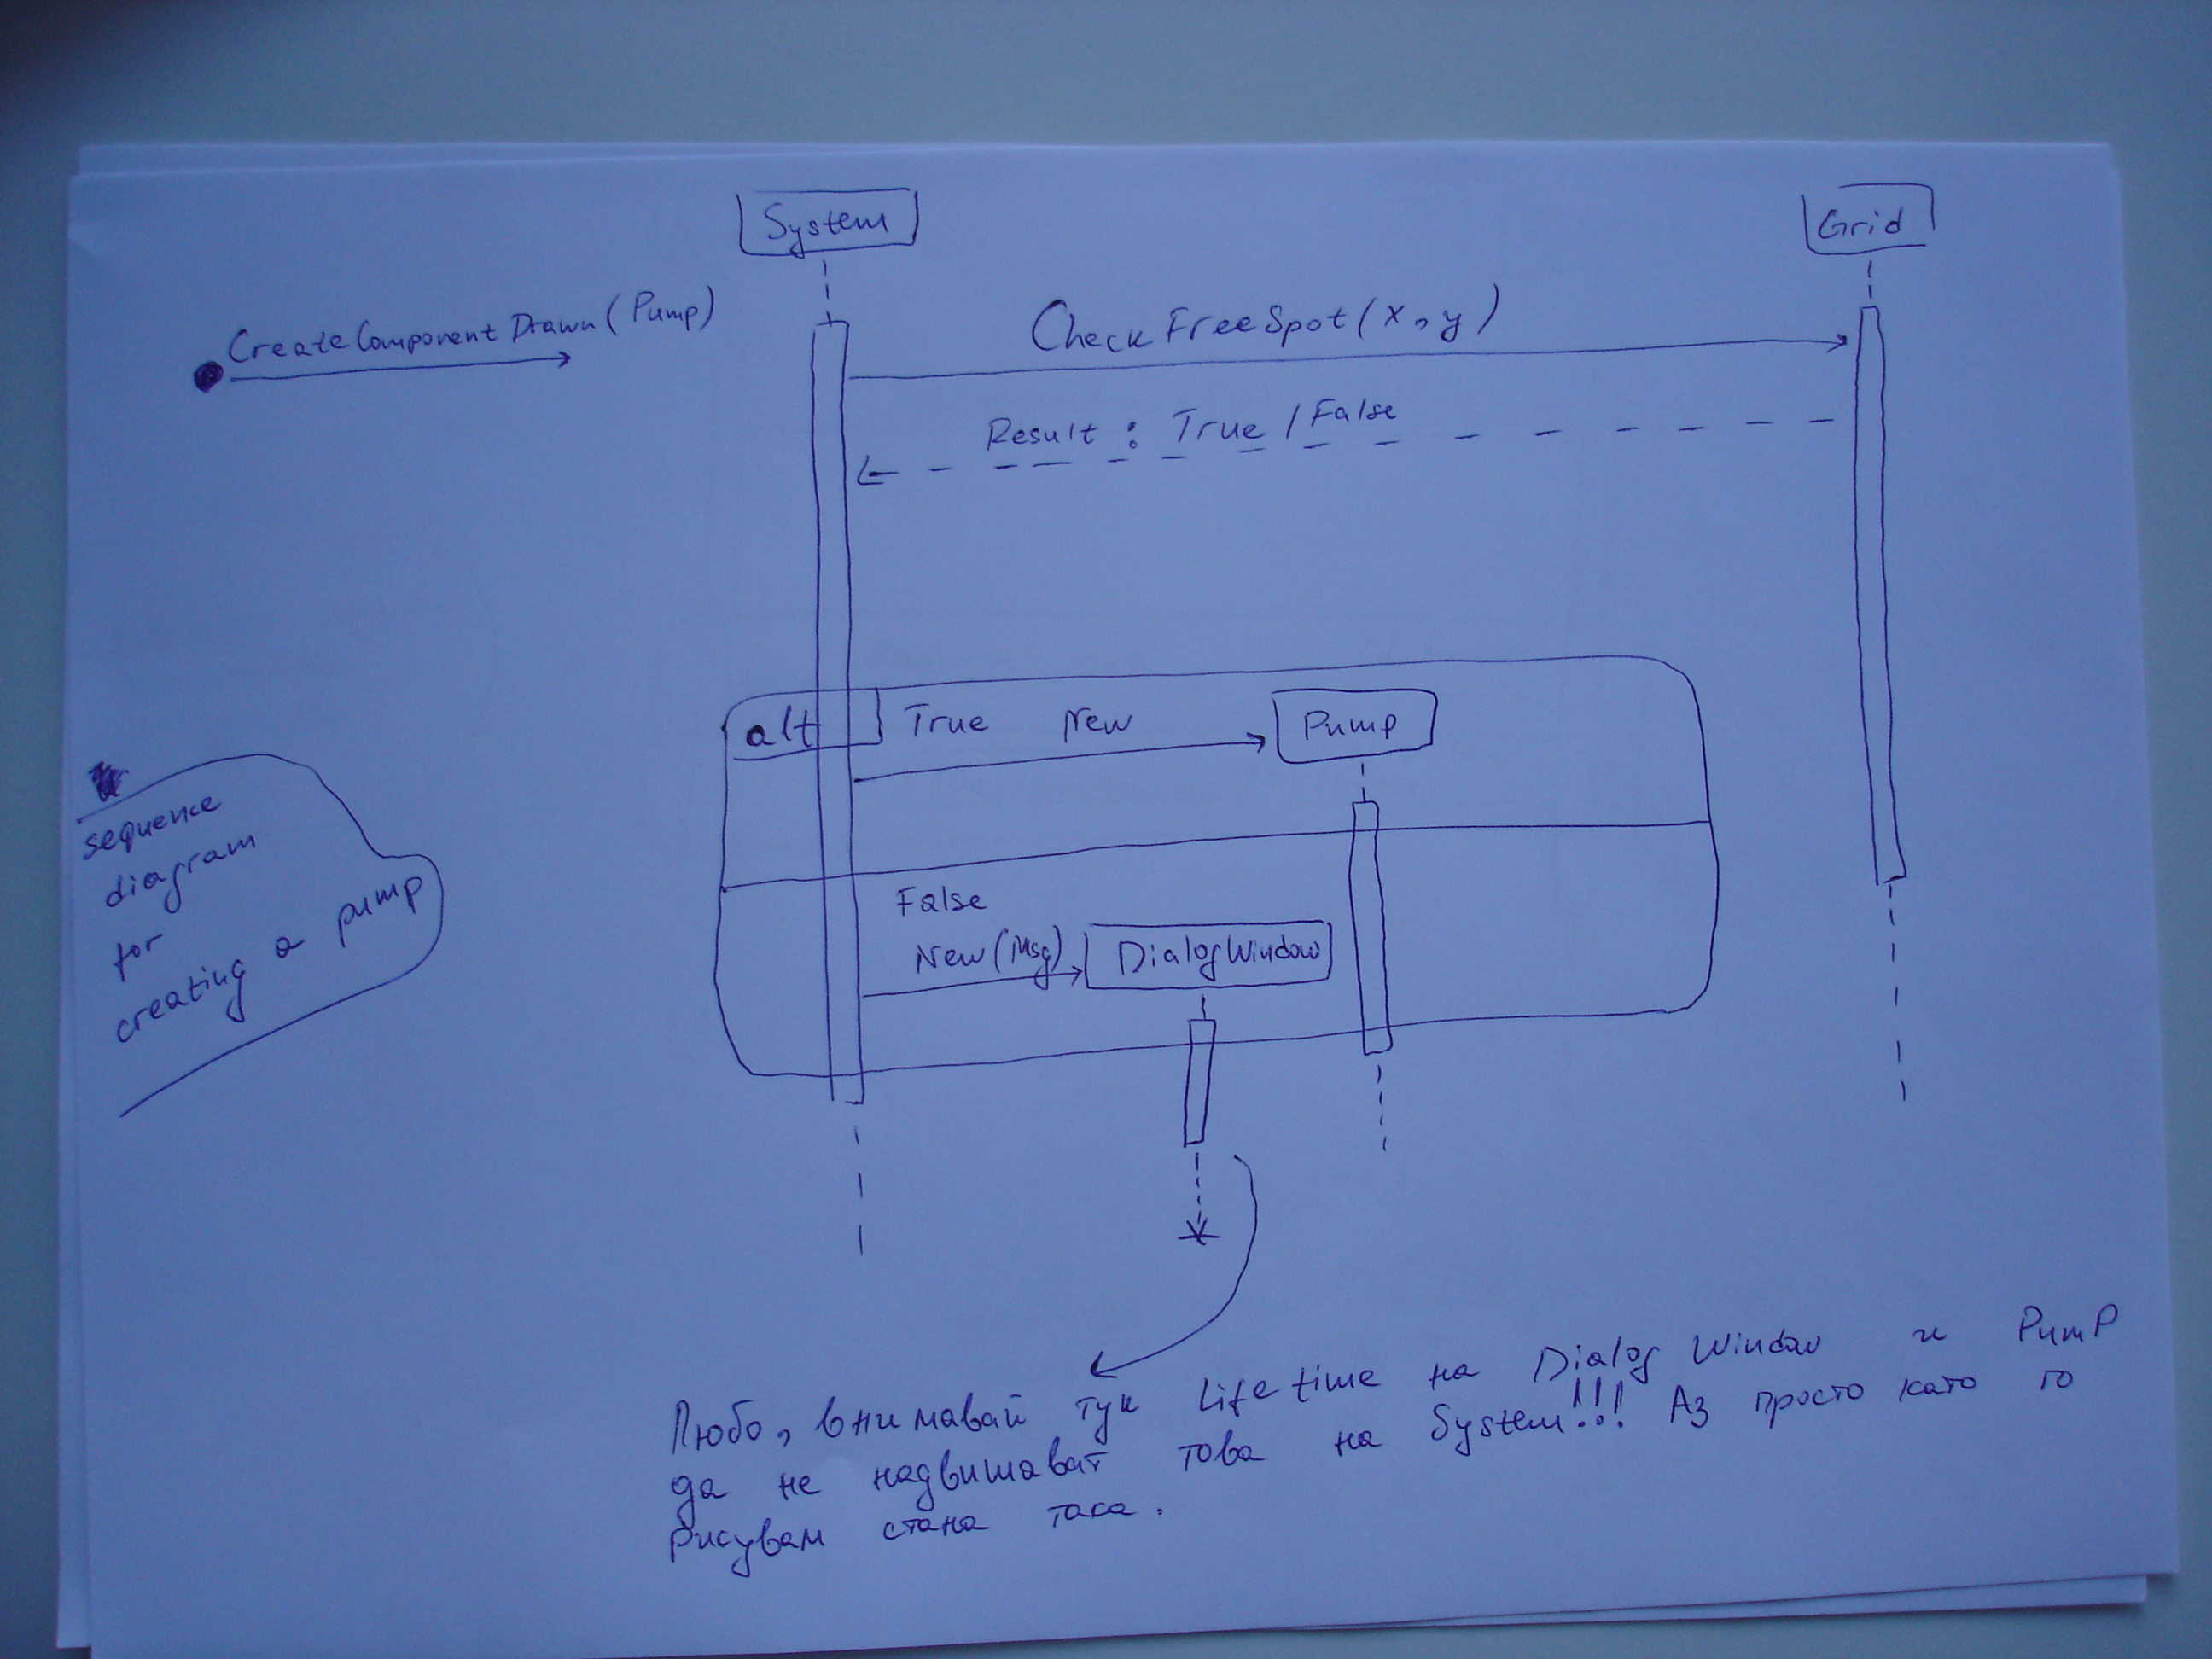 System
Grid
CreateComponentDrawn(Pump)
CheckFreeSpot(x,y)
Result : True / False
alt True New Pump
sequence
diagram
for
creating a pump
False
New(Msg) DialogWindow
Любо, внимавай тук Lifetime на Dialog Window и PumP
да не надвишават това на System!!! Аз просто като го
рисувам стана така.